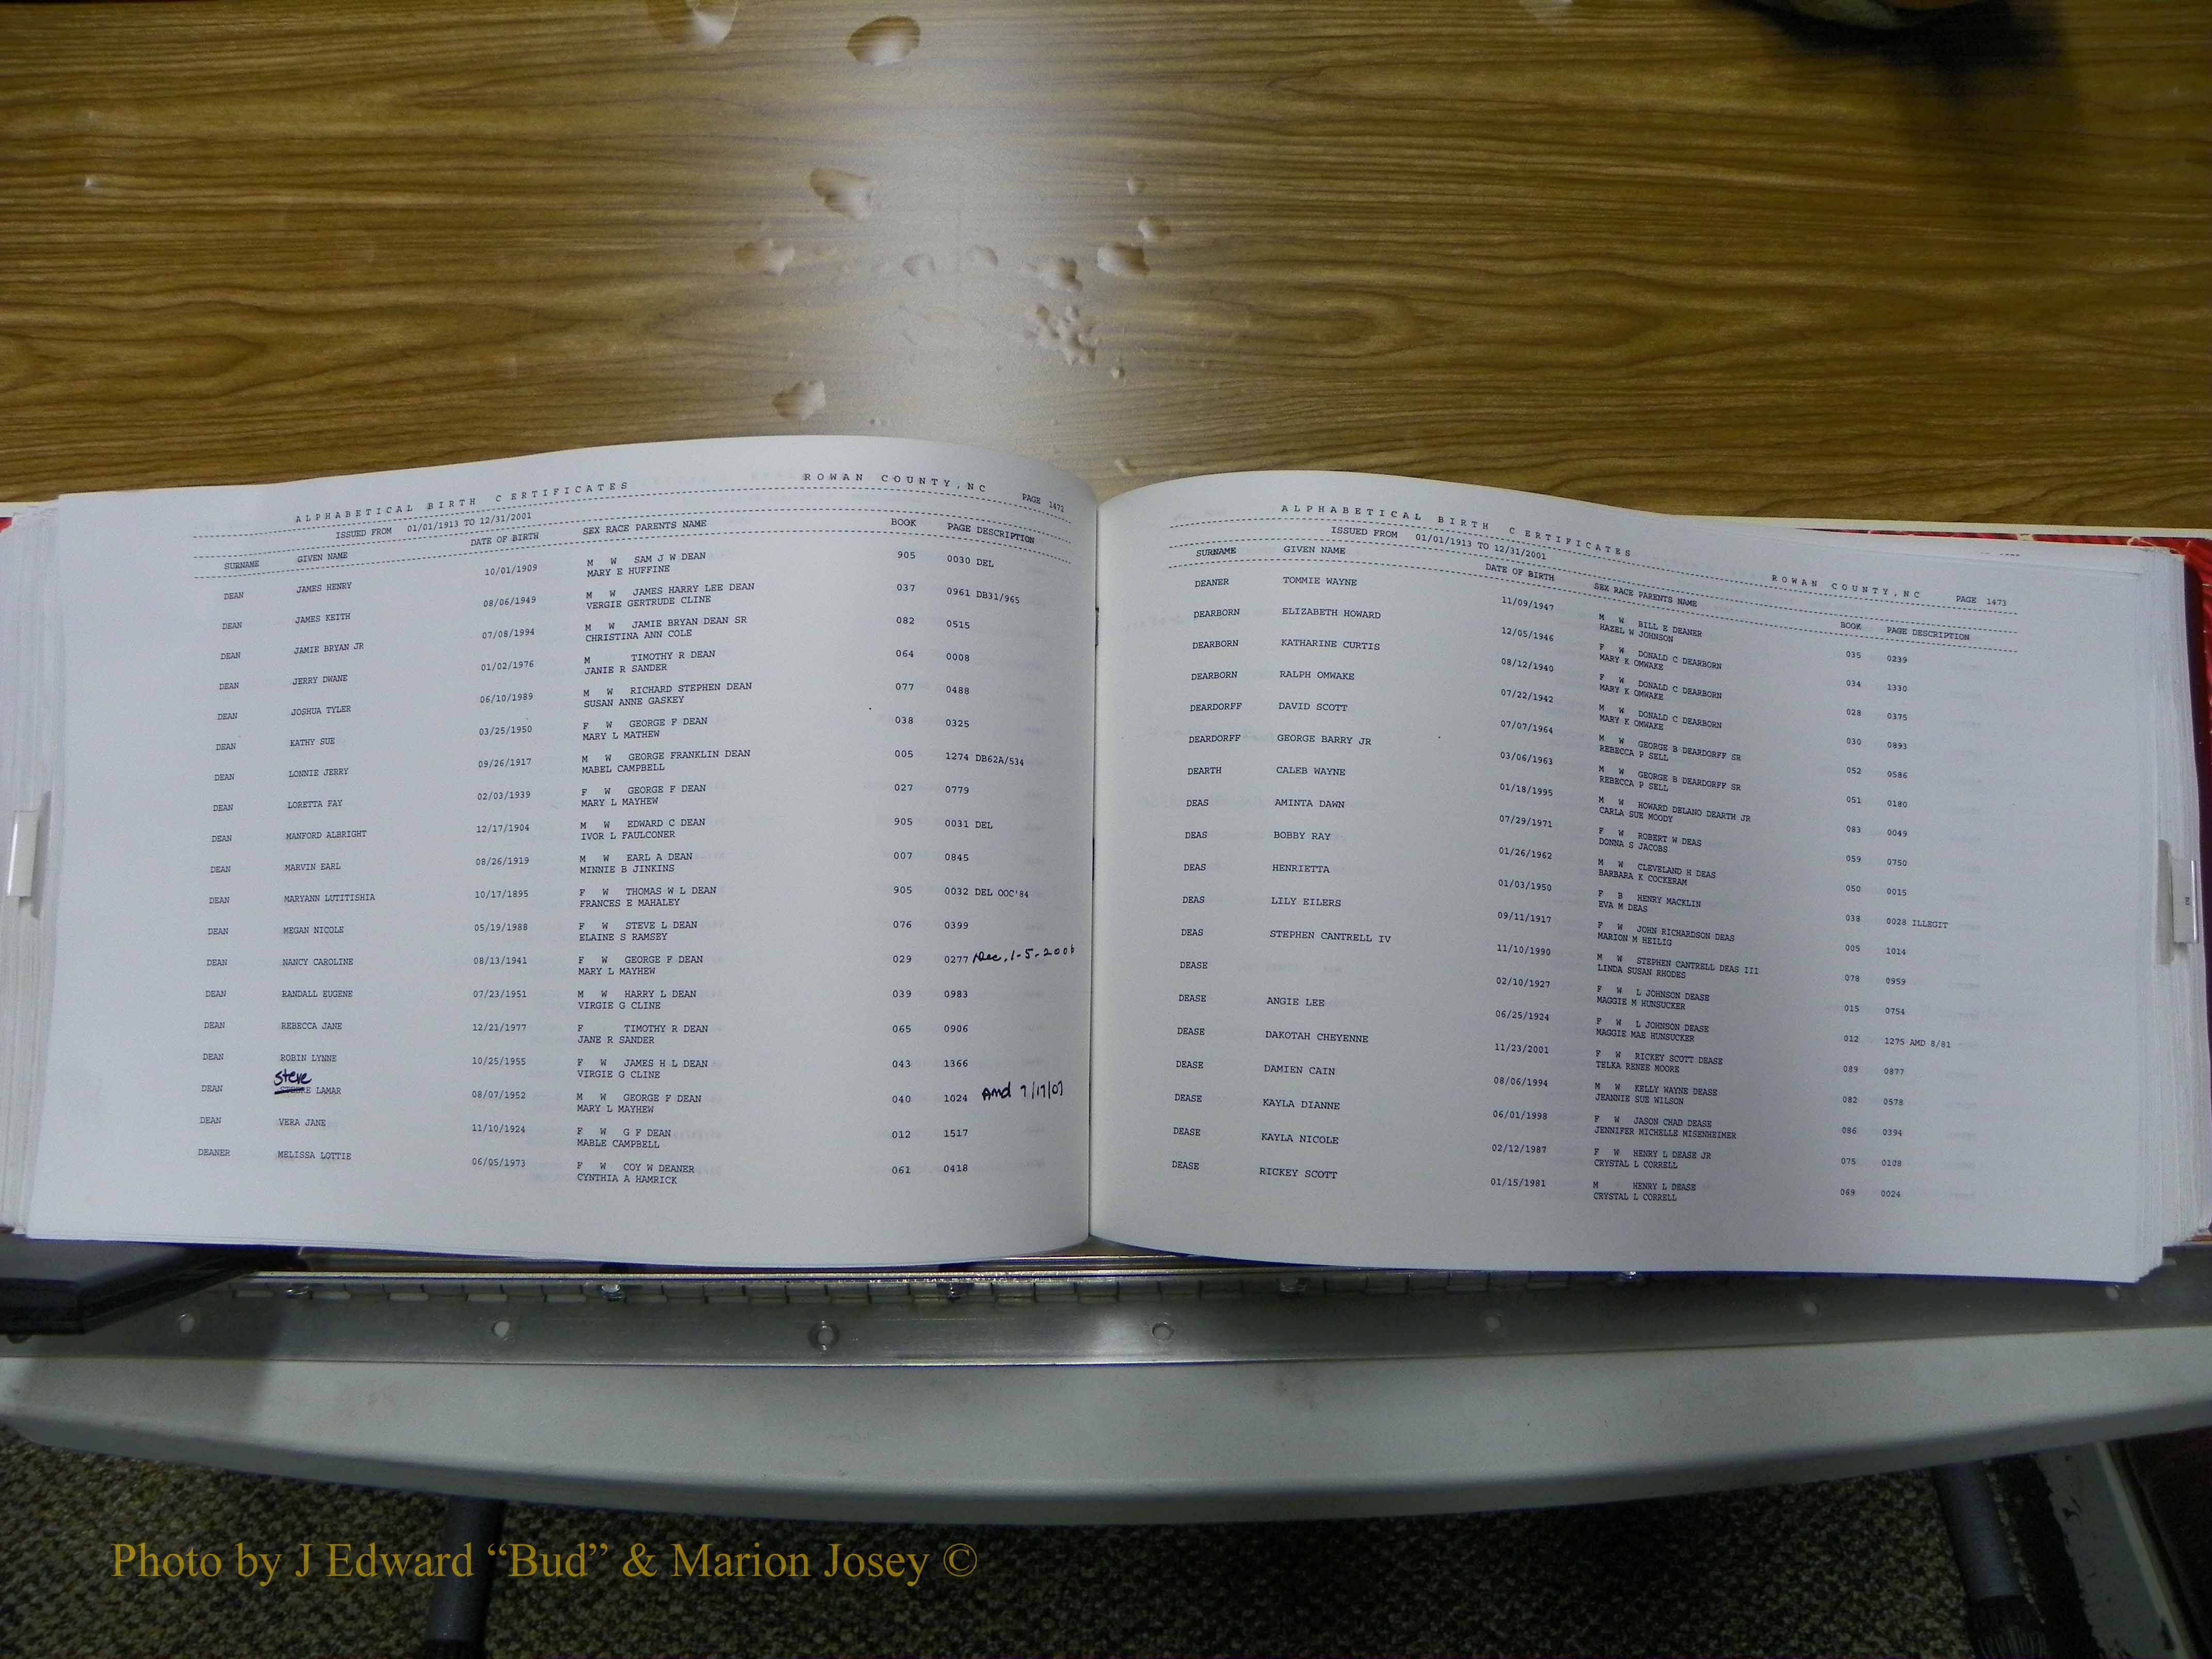 ALPHABETICAL BIRTH CERTIFICATES ROWAN COUNTY, NC PAGE 1472
ISSUED FROM 01/01/1913 TO 12/31/2001
SURNAME GIVEN NAME DATE OF BIRTH SEX RACE PARENTS NAME BOOK PAGE DESCRIPTION
DEAN JAMES HENRY 10/01/1909 M W SAM J W DEAN 905 0030 DEL
MARY E HUFFINE
DEAN JAMES KEITH 08/06/1949 M W JAMES HARRY LEE DEAN 037 0961 DB31/965
VERGIE GERTRUDE CLINE
DEAN JAMIE BRYAN JR 07/08/1994 M W JAMIE BRYAN DEAN SR 082 0515
CHRISTINA ANN COLE
DEAN JERRY DWANE 01/02/1976 M TIMOTHY R DEAN 064 0008
JANIE R SANDER
DEAN JOSHUA TYLER 06/10/1989 M W RICHARD STEPHEN DEAN 077 0488
SUSAN ANNE GASKEY
DEAN KATHY SUE 03/25/1950 F W GEORGE F DEAN 038 0325
MARY L MATHEW
DEAN LONNIE JERRY 09/26/1917 M W GEORGE FRANKLIN DEAN 005 1274 DB62A/534
MABEL CAMPBELL
DEAN LORETTA FAY 02/03/1939 F W GEORGE F DEAN 027 0779
MARY L MAYHEW
DEAN MANFORD ALBRIGHT 12/17/1904 M W EDWARD C DEAN 905 0031 DEL
IVOR L FAULCONER
DEAN MARVIN EARL 08/26/1919 M W EARL A DEAN 007 0845
MINNIE B JINKINS
DEAN MARYANN LUTITISHIA 10/17/1895 F W THOMAS W L DEAN 905 0032 DEL OOC'84
FRANCES E MAHALEY
DEAN MEGAN NICOLE 05/19/1988 F W STEVE L DEAN 076 0399
ELAINE S RAMSEY
DEAN NANCY CAROLINE 08/13/1941 F W GEORGE F DEAN 029 0277 Dec, 1-5-2006
MARY L MAYHEW
DEAN RANDALL EUGENE 07/23/1951 M W HARRY L DEAN 039 0983
VIRGIE G CLINE
DEAN REBECCA JANE 12/21/1977 F TIMOTHY R DEAN 065 0906
JANE R SANDER
DEAN ROBIN LYNNE 10/25/1955 F W JAMES H L DEAN 043 1366
VIRGIE G CLINE
Steve
DEAN LAMAR 08/07/1952 M W GEORGE F DEAN 040 1024 Amd 7/17/07
MARY L MAYHEW
DEAN VERA JANE 11/10/1924 F W G F DEAN 012 1517
MABLE CAMPBELL
DEANER MELISSA LOTTIE 06/05/1973 F W COY W DEANER 061 0418
CYNTHIA A HAMRICK
ALPHABETICAL BIRTH CERTIFICATES ROWAN COUNTY, NC PAGE 1473
ISSUED FROM 01/01/1913 TO 12/31/2001
SURNAME GIVEN NAME DATE OF BIRTH SEX RACE PARENTS NAME BOOK PAGE DESCRIPTION
DEANER TOMMIE WAYNE 11/09/1947 M W BILL E DEANER 035 0239
HAZEL W JOHNSON
DEARBORN ELIZABETH HOWARD 12/05/1946 F W DONALD C DEARBORN 034 1330
MARY K OMWAKE
DEARBORN KATHARINE CURTIS 08/12/1940 F W DONALD C DEARBORN 028 0375
MARY K OMWAKE
DEARBORN RALPH OMWAKE 07/22/1942 M W DONALD C DEARBORN 030 0893
MARY K OMWAKE
DEARDORFF DAVID SCOTT 07/07/1964 M W GEORGE B DEARDORFF SR 052 0586
REBECCA P SELL
DEARDORFF GEORGE BARRY JR 03/06/1963 M W GEORGE B DEARDORFF SR 051 0180
REBECCA P SELL
DEARTH CALEB WAYNE 01/18/1995 M W HOWARD DELANO DEARTH JR 083 0049
CARLA SUE MOODY
DEAS AMINTA DAWN 07/29/1971 F W ROBERT W DEAS 059 0750
DONNA S JACOBS
DEAS BOBBY RAY 01/26/1962 M W CLEVELAND H DEAS 050 0015
BARBARA K COCKERAM
DEAS HENRIETTA 01/03/1950 F B HENRY MACKLIN 038 0028 ILLEGIT
EVA M DEAS
DEAS LILY EILERS 09/11/1917 F W JOHN RICHARDSON DEAS 005 1014
MARION M HEILIG
DEAS STEPHEN CANTRELL IV 11/10/1990 M W STEPHEN CANTRELL DEAS III 078 0959
LINDA SUSAN RHODES
DEASE 02/10/1927 F W L JOHNSON DEASE 015 0754
MAGGIE M HUNSUCKER
DEASE ANGIE LEE 06/25/1924 F W L JOHNSON DEASE 012 1275 AMD 8/81
MAGGIE MAE HUNSUCKER
DEASE DAKOTAH CHEYENNE 11/23/2001 F W RICKEY SCOTT DEASE 089 0877
TELKA RENEE MOORE
DEASE DAMIEN CAIN 08/06/1994 M W KELLY WAYNE DEASE 082 0578
JEANNIE SUE WILSON
DEASE KAYLA DIANNE 06/01/1998 F W JASON CHAD DEASE 086 0394
JENNIFER MICHELLE MISENHEIMER
DEASE KAYLA NICOLE 02/12/1987 F W HENRY L DEASE JR 075 0108
CRYSTAL L CORRELL
DEASE RICKEY SCOTT 01/15/1981 M HENRY L DEASE 069 0024
CRYSTAL L CORRELL
Photo by J Edward “Bud” & Marion Josey ©